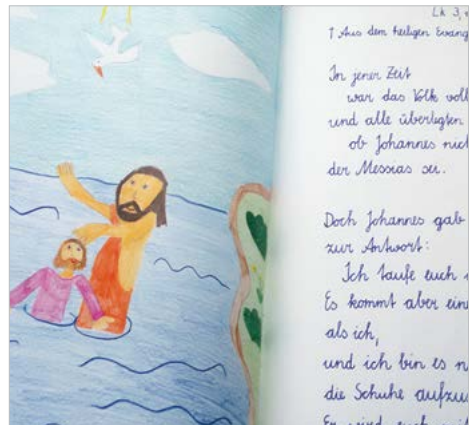 Lk 3,
† Aus dem heiligen Evang
In jener Zeit
war das Volk voll
und alle überlegten
ob Johannes nich
der Messias sei.
Doch Johannes gab
zur Antwort:
Ich taufe euch
Es kommt aber ein
als ich,
und ich bin es n
die Schuhe aufzu
Er wird euch mit